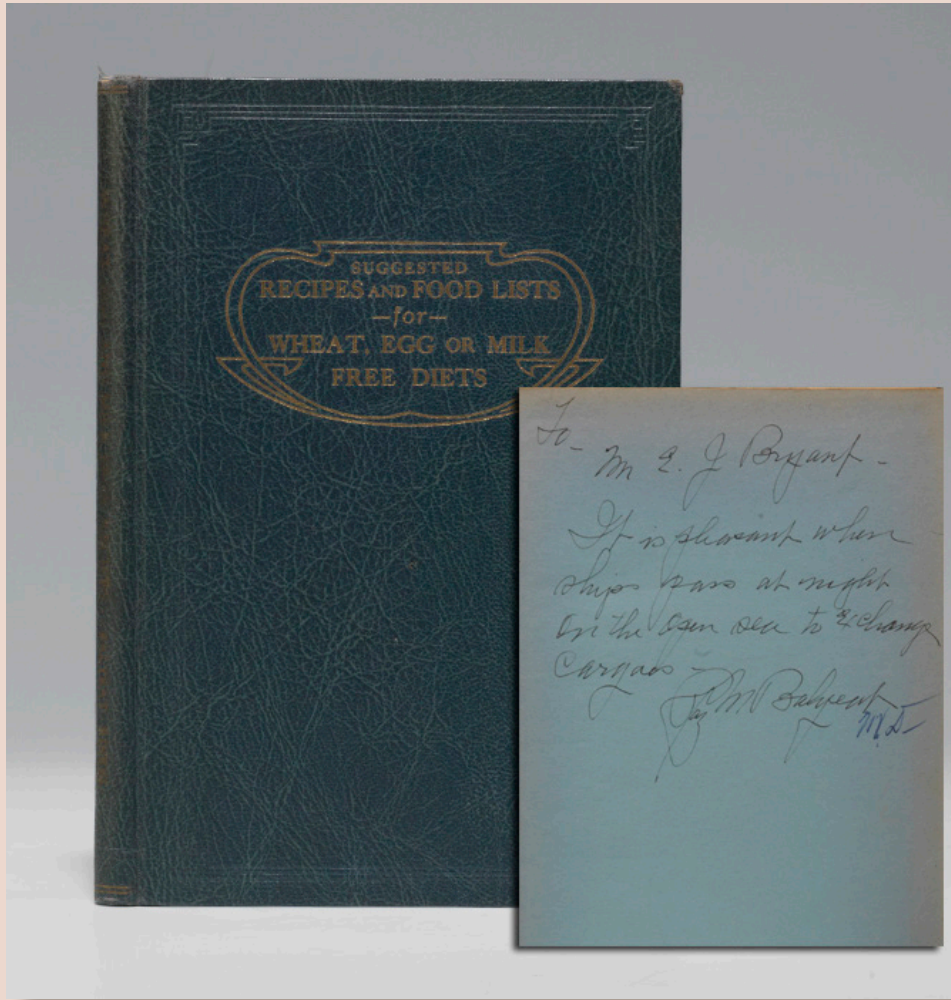 SUGGESTED
RECIPES AND FOOD LISTS
—for—
WHEAT, EGG OR MILK
FREE DIETS
To-
Mr E. J Bryant-
It is pleasant when
ships pass at night
on the open sea to exchange
cargoes-
Ray M Balyeat
M.D